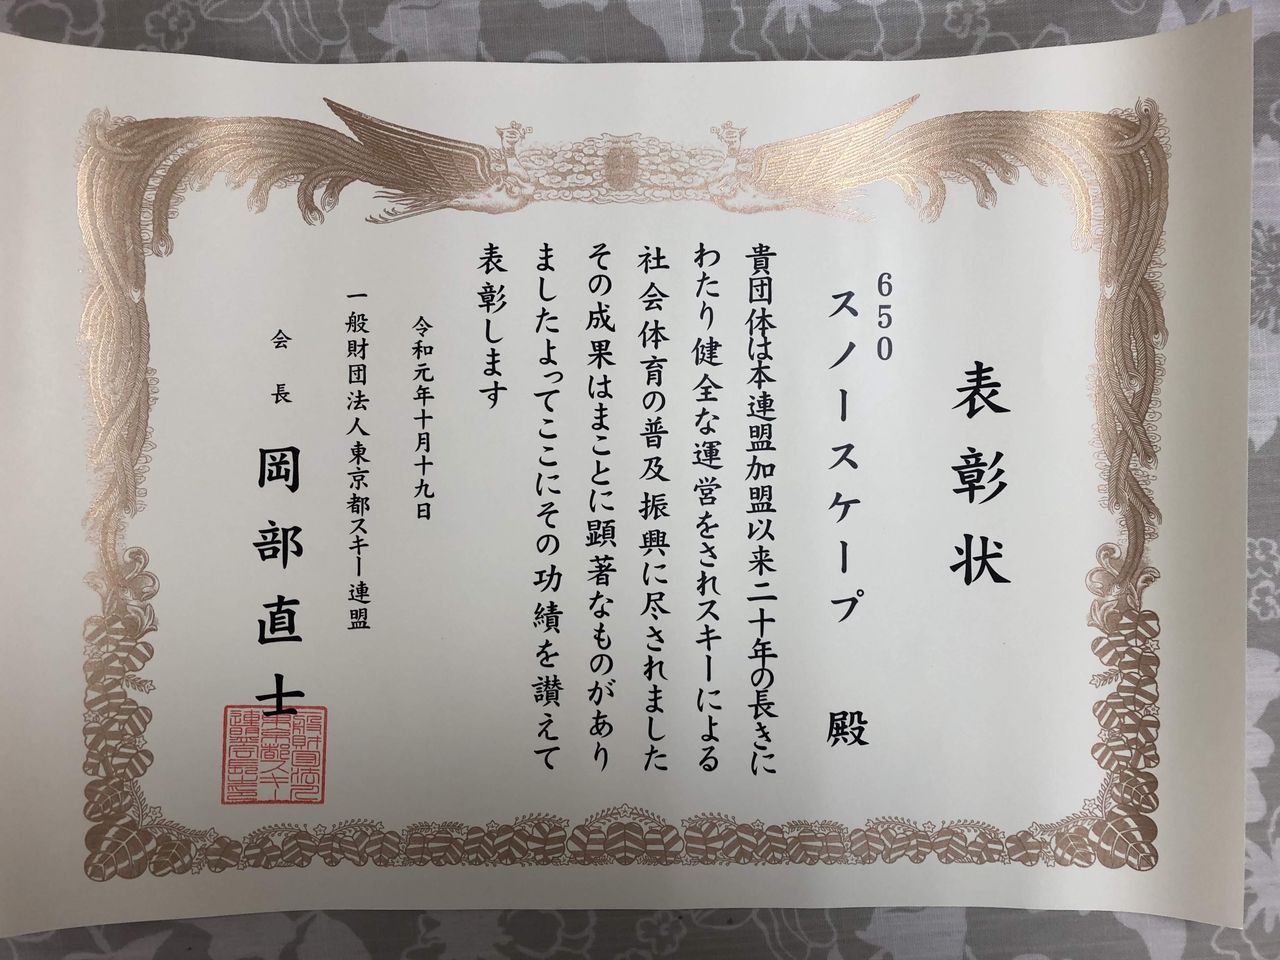 表彰状
650
スノースケープ 殿
貴団体は本連盟加盟以来二十年の長きに
わたり健全な運営をされスキーによる
社会体育の普及振興に尽されました
その成果はまことに顕著なものがあり
ましたよってここにその功績を讃えて
表彰します
令和元年十月十九日
一般財団法人東京都スキー連盟
会長 岡部直士